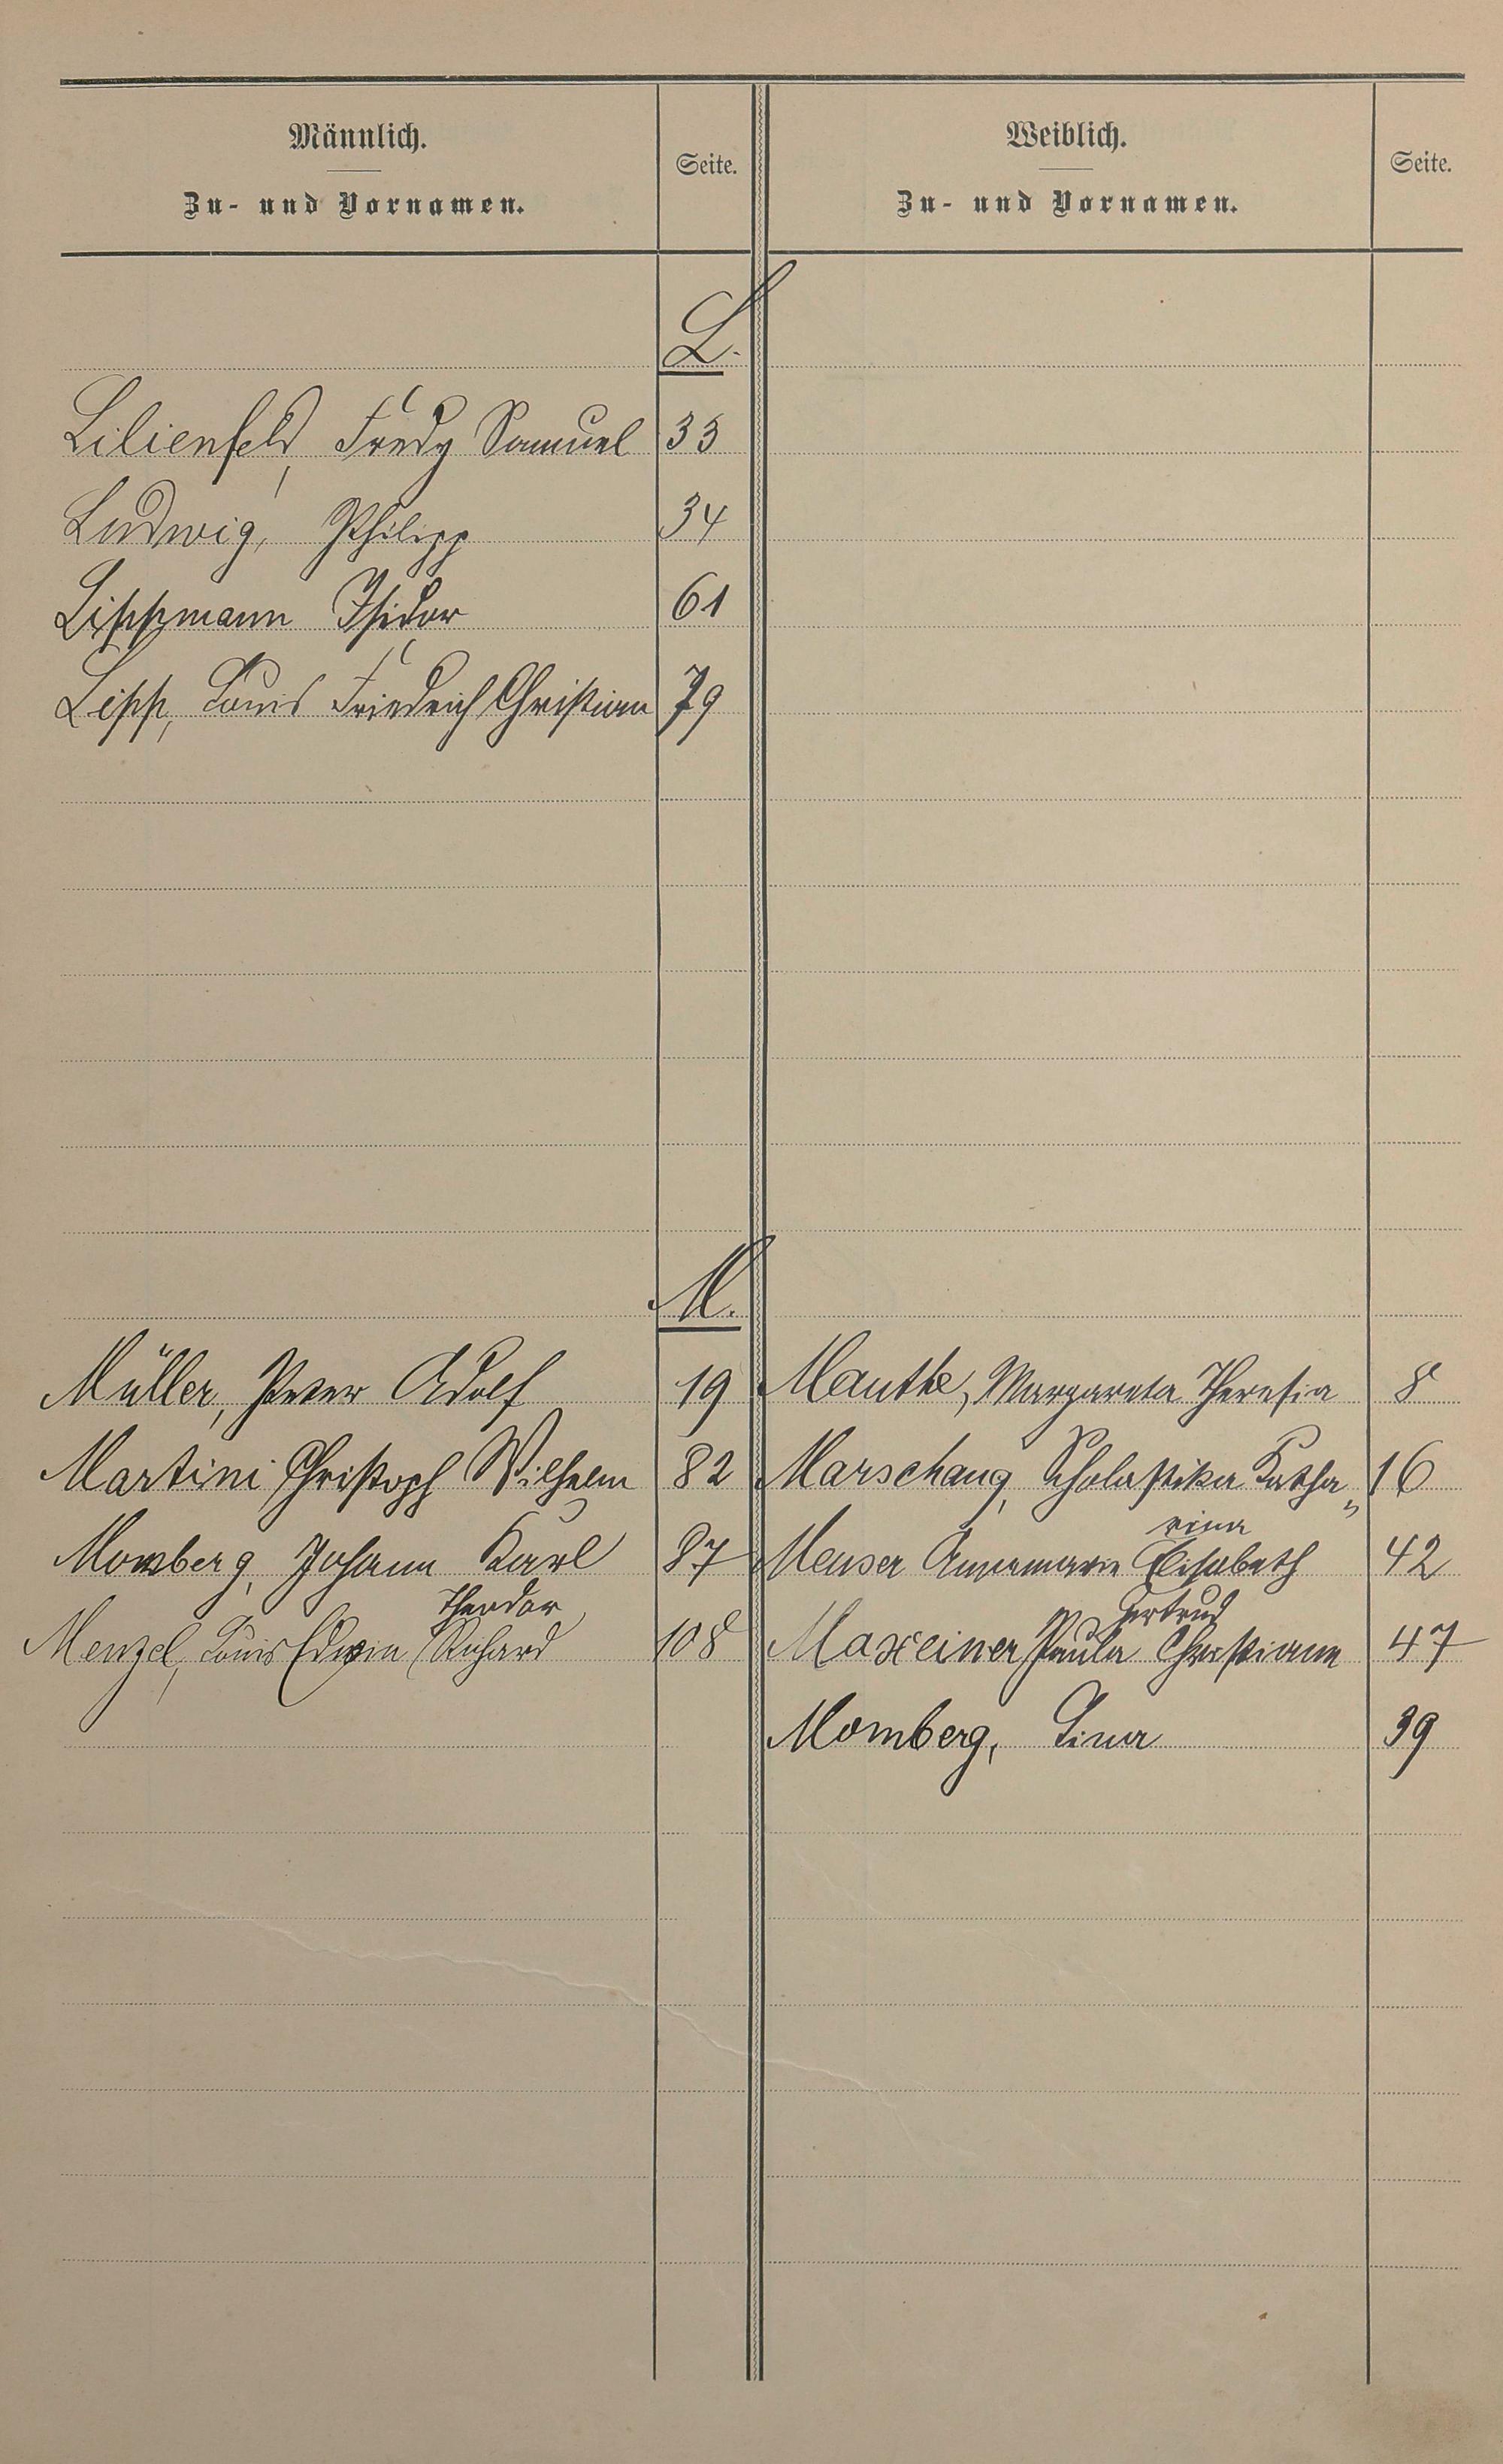 Männlich.
Zu- und Vornamen.
Seite.
Weiblich.
Zu- und Vornamen.
Seite.
L.
Lilienfeld, Fredy Samuel 33
Ludwig, Philipp 34
Lippmann Isidor 61
Lipp, Louis Friedrich Christian 79
M.
Müller, Peter Adolf 19
Martini, Christoph Wilhelm 82
Momberg, Johann Karl 87
Theodor
Menzel, Louis Edwin Richard 108
Manthe, Margareta Theresia 8
Marschang, Scholastika Katha„ 16
rina
Menser Annamarie Elisabeth 42
Gertrud
Maxeiner Paula Christiane 47
Momberg, Lina 39